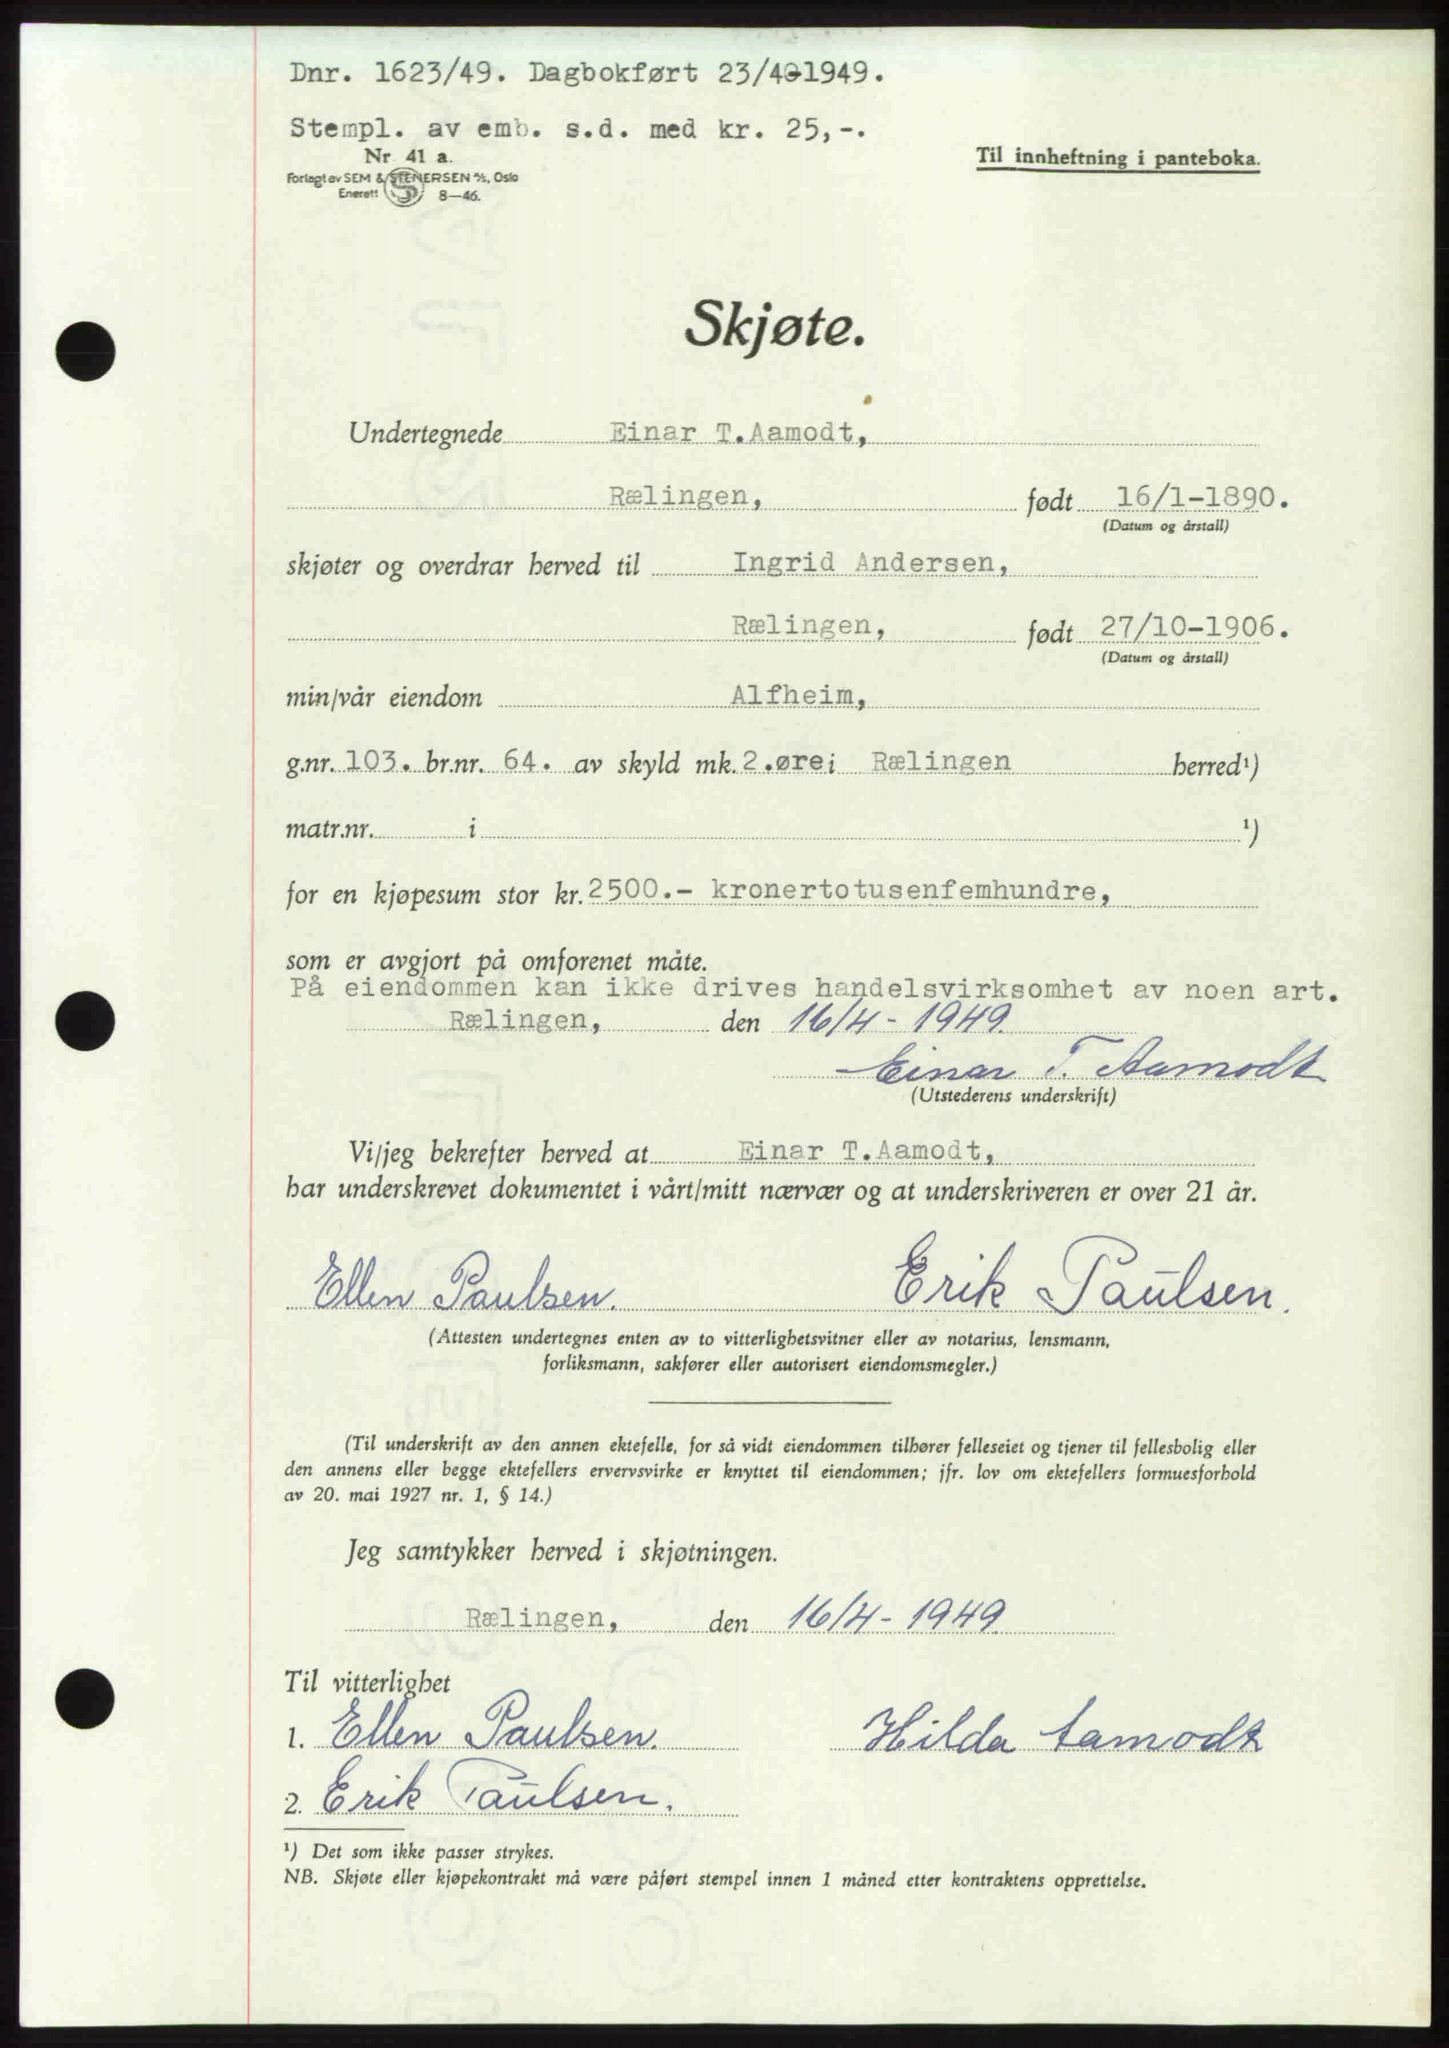 Dnr. 1623/49. Dagbokført 23/4-1949.
Stempl. av emb. s.d. med kr. 25,-.
Nr 41 a.
Forlagt av SEM & STENERSEN A/S, Oslo
Enerett 8—46.
Til innheftning i panteboka.
Skjøte.
Undertegnede Einar T. Aamodt,
Rælingen, født 16/1-1890.
(Datum og årstall)
skjøter og overdrar herved til Ingrid Andersen,
Rælingen, født 27/10-1906.
(Datum og årstall)
min/vår eiendom Alfheim,
g.nr. 103. br.nr. 64. av skyld mk. 2.øre i Rælingen herred¹)
matr.nr. i ¹)
for en kjøpesum stor kr. 2500.- kronertotusenfemhundre,
som er avgjort på omforenet måte.
På eiendommen kan ikke drives handelsvirksomhet av noen art.
Rælingen, den 16/4 - 1949.
Einar T. Aamodt
(Utstederens underskrift)
Vi/jeg bekrefter herved at Einar T. Aamodt,
har underskrevet dokumentet i vårt/mitt nærvær og at underskriveren er over 21 år.
Ellen Paulsen. Erik Paulsen.
(Attesten undertegnes enten av to vitterlighetsvitner eller av notarius, lensmann,
forliksmann, sakfører eller autorisert eiendomsmegler.)
(Til underskrift av den annen ektefelle, for så vidt eiendommen tilhører felleseiet og tjener til fellesbolig eller
den annens eller begge ektefellers ervervsvirke er knyttet til eiendommen; jfr. lov om ektefellers formuesforhold
av 20. mai 1927 nr. 1, § 14.)
Jeg samtykker herved i skjøtningen.
Rælingen, den 16/4 - 1949.
Til vitterlighet
1. Ellen Paulsen. Hilda Aamodt
2. Erik Paulsen.
¹) Det som ikke passer strykes.
NB. Skjøte eller kjøpekontrakt må være påført stempel innen 1 måned etter kontraktens opprettelse.